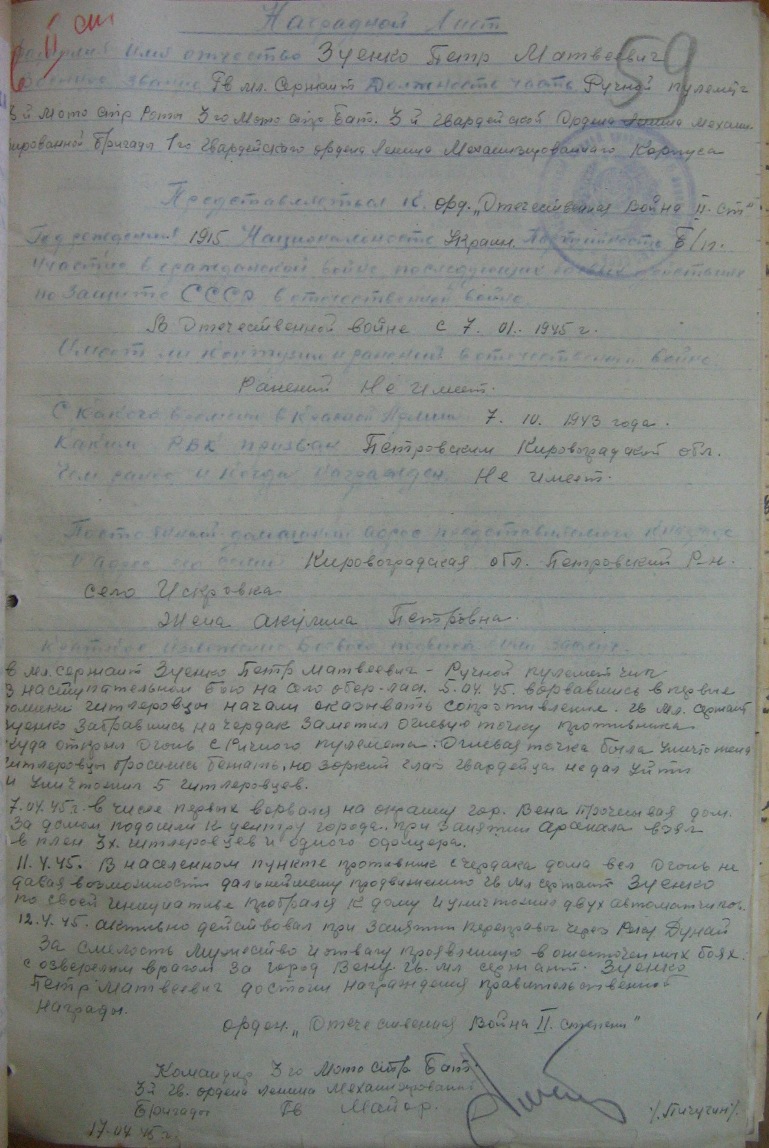 Наградной Лист
59
Фамилия Имя отчество Зуенко Петр Матвеевич
Военное звание Гв мл. Сержант Должность часть Ручной пулемет
3 й Мото стр Роты 3го Мото стр Бат. 3 й Гвардейской Ордена Ленина механи
зированной Бригады 1го Гвардейского ордена Ленина Механизированного Корпуса
Представляется к орд. „Отечественная Война II. ст"
Год рождения 1915 Национальность Украин. Партийность Б/п.
Участие в гражданской войне последующих боевых действиях
по Защите СССР в отечественной войне
В Отечественной войне с 7. 01. 1945 г.
Имеет ли контузии и ранения в отечественной войне
Ранений Не имеет.
С какого времени в Красной Армии 7. 10. 1943 года.
Каким РВК призван Петровским Кировоградской обл.
Чем ранее и когда Награжден Не имеет.
Постоянный домашний адрес представляемого к награде
и адрес его семьи Кировоградская обл. Петровский р-н.
село Искровка
Жена Акулина Петровна.
Краткое изложение Боевого подвига или заслуг.
в мл. сержант Зуенко Петр Матвеевич - Ручной пулеметчик
В наступательном бою на село обер-лаа. 5.04.45. ворвавшись в первые
домики гитлеровцы начали оказывать сопротивление. гв мл. сержант
Зуенко Забравшись на чердак Заметил огневую точку противника
куда открыл Огонь с Ручного пулемета. Огневая точка была уничтожена
гитлеровцы бросились бежать, но зоркий глаз гвардейца не дал уйти
и уничтожил 5 гитлеровцев.
7.04.45г. в числе первых ворвался на окраину гор. Вена Прочесывая дом.
За домом подошли к центру города. при Занятии Арсенала взял
в плен 3х. гитлеровцев и одного офицера.
11. 4. 45. В населенном пункте противник с чердака дома вел Огонь не
давая возможности дальнейшему продвижению гв мл сержант Зуенко
по своей инициативе пробрался к дому и уничтожил двух автоматчиков.
12. 4. 45. активно действовал при Занятии переправы через Реку Дунай
За смелость мужество и отвагу проявленную в ожесточенных боях
с озверелым врагом за город Вену гв. мл сержант. Зуенко
Петр Матвеевич достоин награждения правительственной
награды.
орден „Отечественная Война II. степени"
Командир 3го Мото стр Бат.
3 й гв. ордена Ленина Механизированной
Бригады Гв Майор. /. Пичугин/.
17.04 45 г.